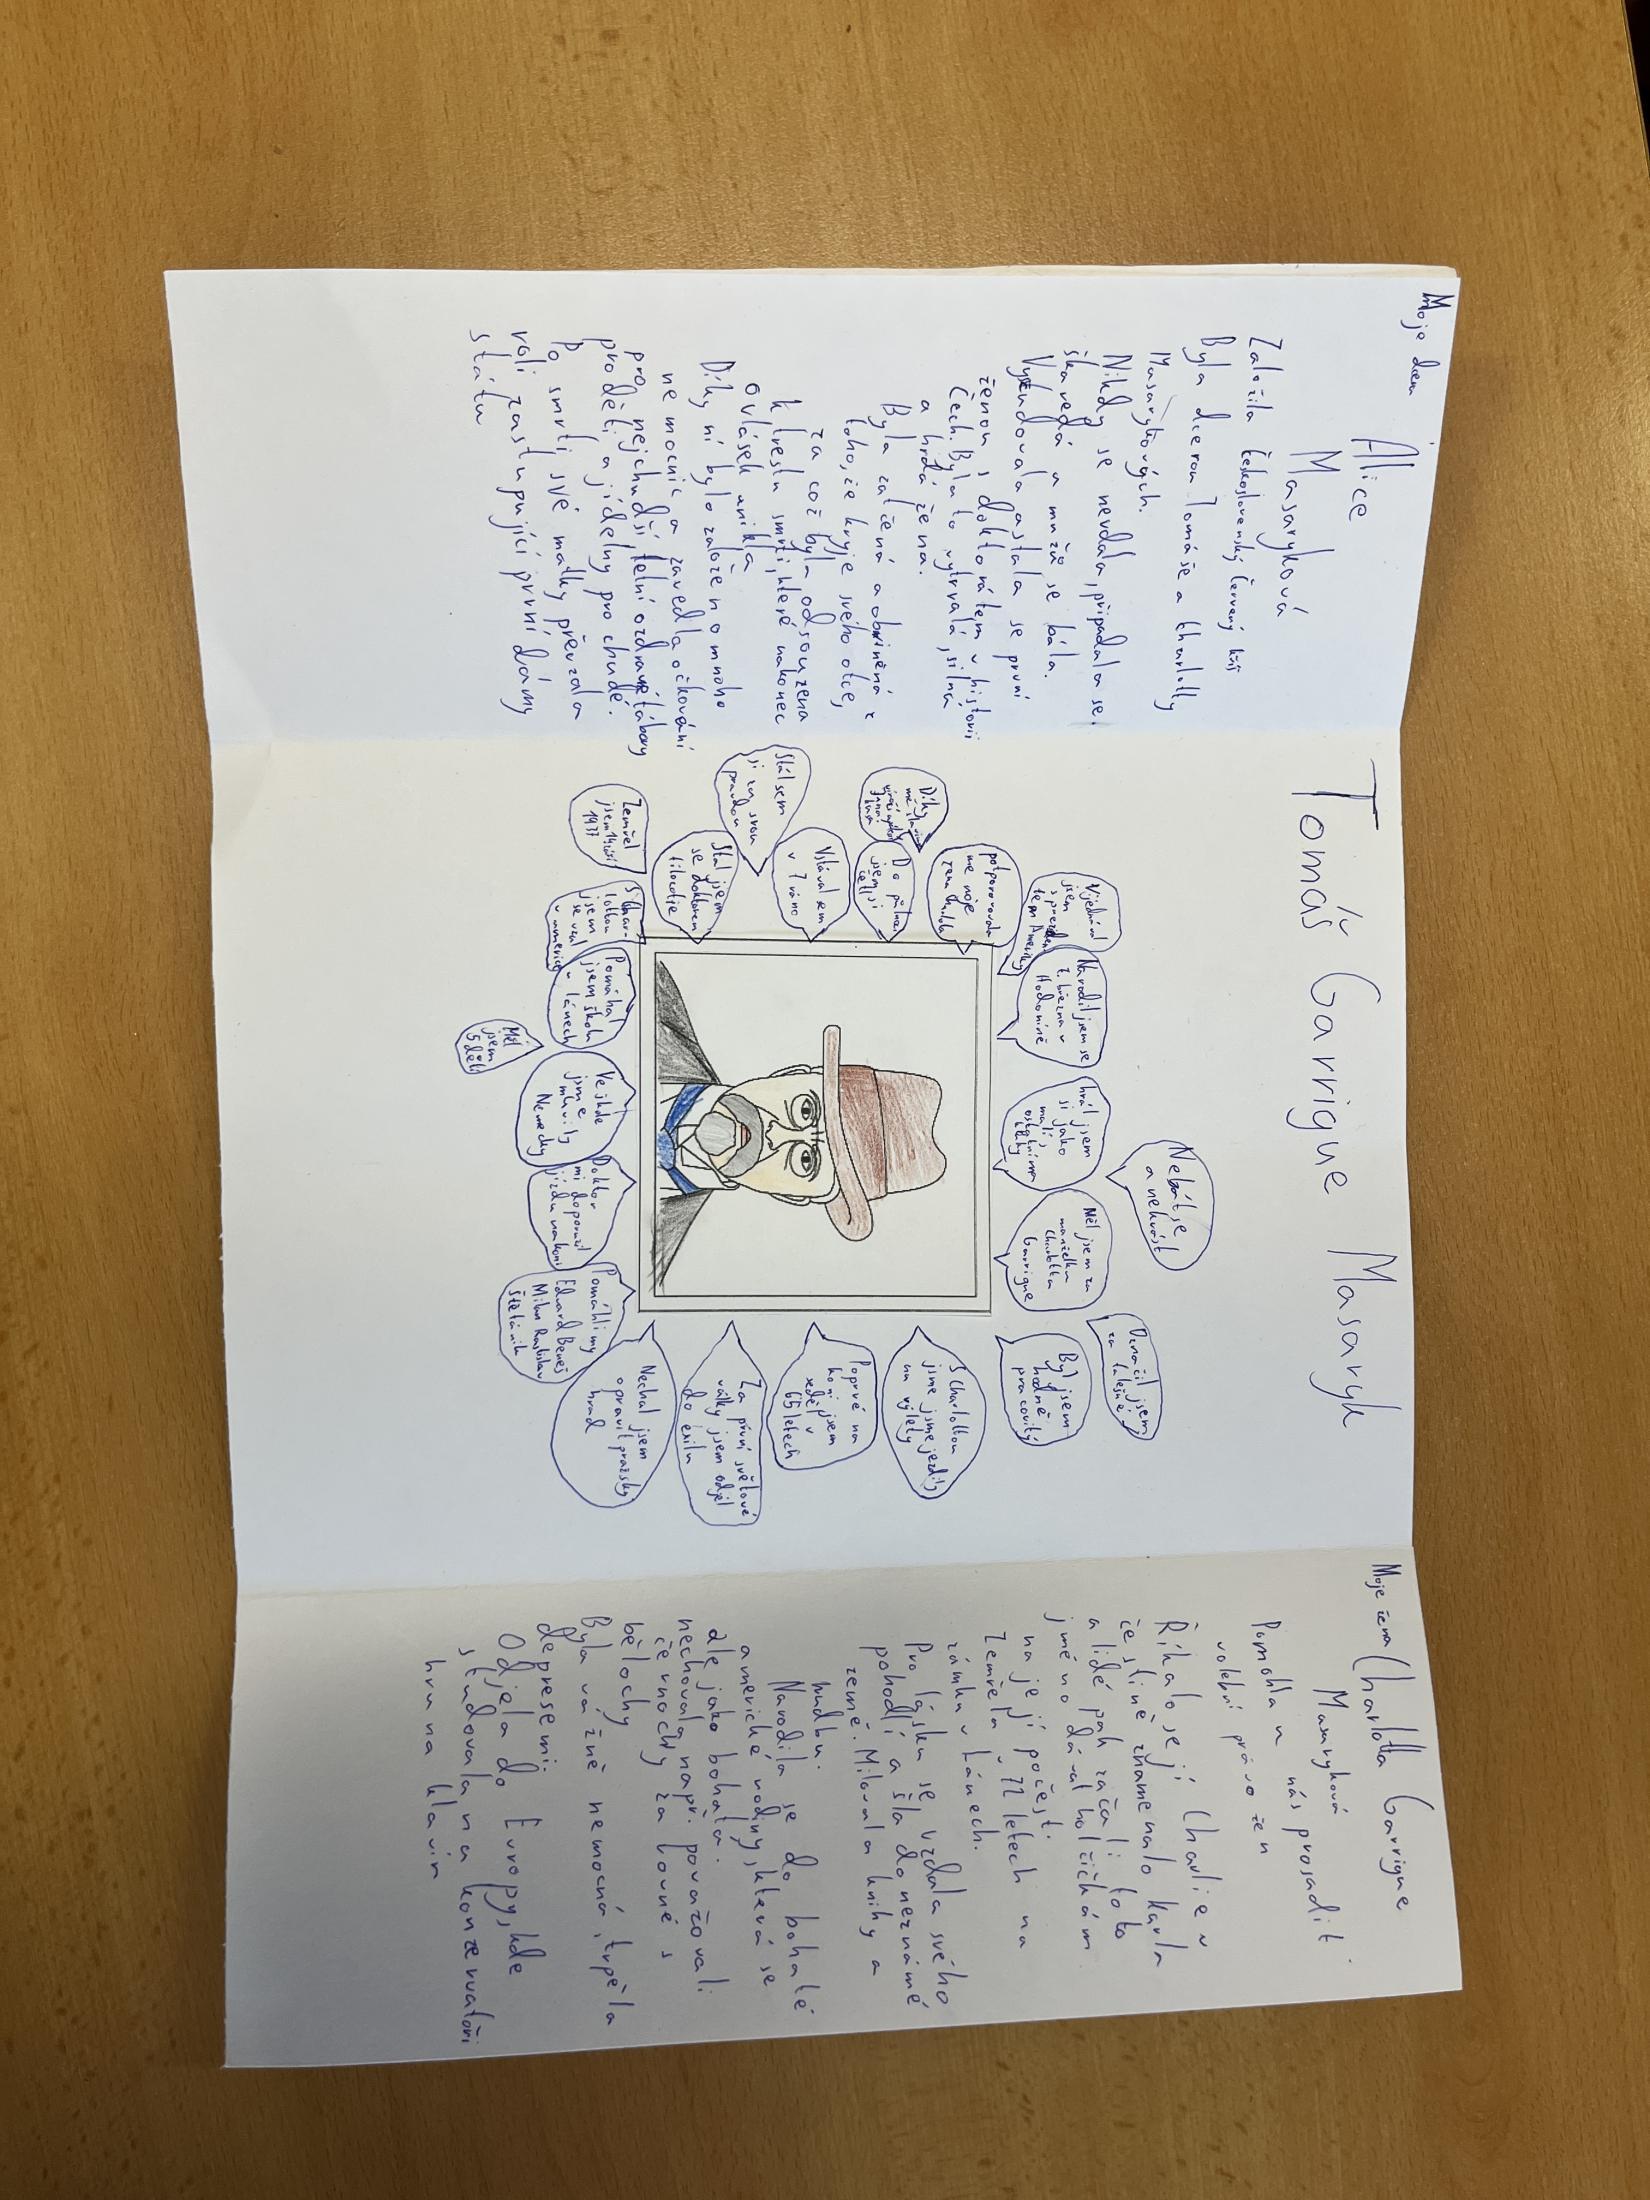 Moje dcera
Alice
Masaryková
Založila československý červený kříž
Byla dcerou Tomáše a Charlotty
Masarykových.
Nikdy se nevdala, připadala se
škaredá a mužů se bála.
Vystudovala a stala se první
ženou s doktorátem v historii
Čech. Byla to vytrvalá, silná
a hrdá žena.
Byla zatčená a obviněná z
toho, že kryje svého otce,
za což byla odsouzena
k trestu smrti, které nakonec
o vlásek unikla
Díky ní bylo založeno mnoho
nemocnic a zavedla očkování
pro nejchudší, letní ozdravé tábory
pro děti a jídelny pro chudé.
Po smrti své matky převzala
roli zastupující první dámy
státu
Tomáš Garrigue Masaryk
Vijednával
jsem
s preziden
tem Ameriky
Narodil jsem se
7. března v
Hodoníně
hrál jsem
si jako
malí s
ostatníma
Nebát se
a nekrást
Měl jsem za
manželku
Charlottu
Garrigue
Označil jsem
za falešné
Byl jsem
hodně
pracovitý
potporovovala
me moje
žena
Díky
Do půlnoci
jsem si
četl
Vstával sem
v 7 ráno
Stál sem
si za svou
pravdou
Stal jsem
se doktorem
filozofie
Zemřel
jsem 14. září
1937
S Char-
lottou
jsem
se vzal
v americe
Pomáhal
jsem škole
v Lánech
Měl
jsem
5 dětí
Ve škole
jsme
mluvily
Německy
Doktor
mi doporučil
jízdu na koni
Pomáhli my
Edvard Beneš
Milan Rastislav
Štefánik
Nechal jsem
opravit pražský
hrad
Za první světové
války jsem odjel
do exilu
Poprvé na
koni jsem
seděl v
65 letech
S Charlottou
jsme jsme jezdily
na výlety
Moje žena Charlotta Garrigue
Masaryková
Pomohla u nás prosadit
volební právo žen
Říkalo se jí Charlie v
češtině znamenalo Karla
a lidé pak začali toto
jméno dávat holčičkám
na její počest.
Zemřela v 72 letech na
zámku v Lánech.
Pro lásku se vzdala svého
pohodlí a šla do neznámé
země. Milovala knihy a
hudbu.
Narodila se do bohaté
americké rodiny, která se
ale jako bohatá
nechovala např. považovali
černochy za rovné s
bělochy
Byla vážně nemocná, trpěla
depresemi.
Odjela do Evropy, kde
studovala na konzervatoři
hru na klavír